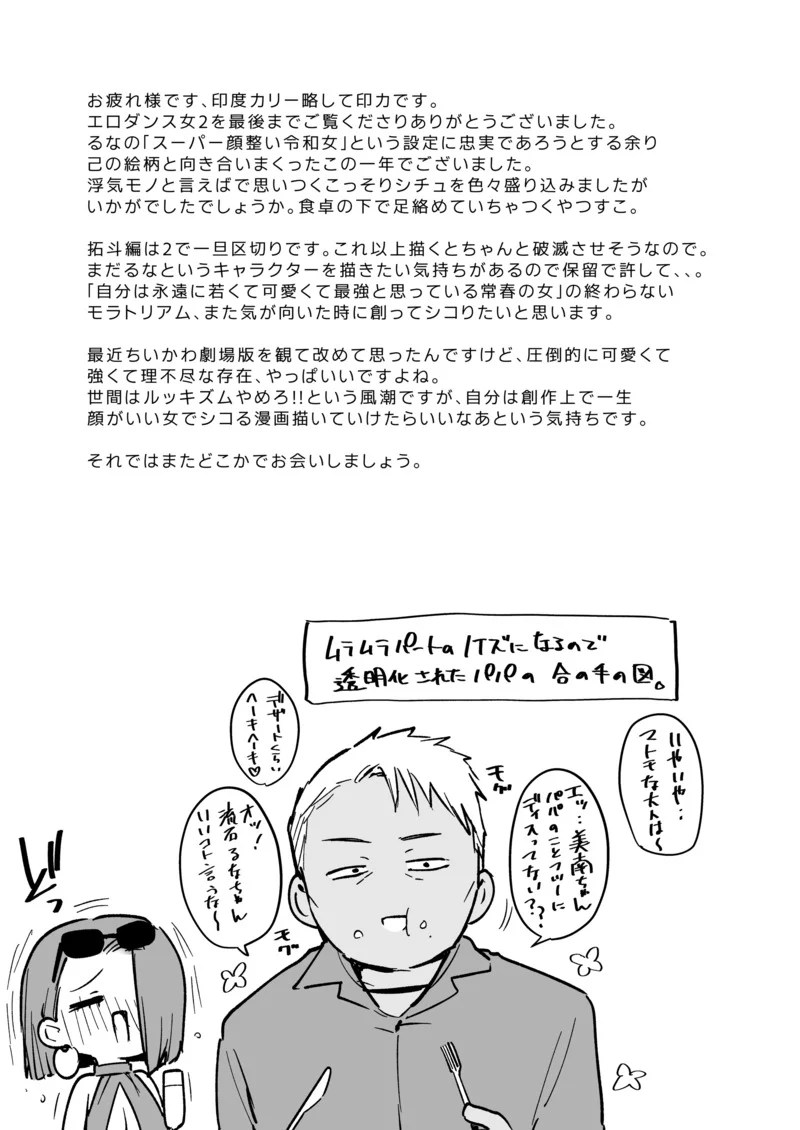 お疲れ様です、印度カリー略して印力です。
エロダンス女2を最後までご覧くださりありがとうございました。
るなの「スーパー顔整い令和女」という設定に忠実であろうとする余り
己の絵柄と向き合いまくったこの一年でございました。
浮気モノと言えばで思いつくこっそりシチュを色々盛り込みましたが
いかがでしたでしょうか。食卓の下で足絡めていちゃつくやつすこ。
拓斗編は2で一旦区切りです。これ以上描くとちゃんと破滅させそうなので。
まだるなというキャラクターを描きたい気持ちがあるので保留で許して、、。
「自分は永遠に若くて可愛くて最強と思っている常春の女」の終わらない
モラトリアム、また気が向いた時に創ってシコりたいと思います。
最近ちいかわ劇場版を観て改めて思ったんですけど、圧倒的に可愛くて
強くて理不尽な存在、やっぱいいですよね。
世間はルッキズムやめろ!!という風潮ですが、自分は創作上で一生
顔がいい女でシコる漫画描いていけたらいいなあという気持ちです。
それではまたどこかでお会いしましょう。
ムラムラパートのノイズになるので
透明化されたパパの 合の手の図。
いやいや‥
マトモな大人は〜
エッ…美南ちゃん
パパのことフツーに
ディスってない??
モグ
デザートくらい
ヘーキヘーキ♡
オッ!
流石るなちゃん
いいコト言うな〜
モグ
どっ